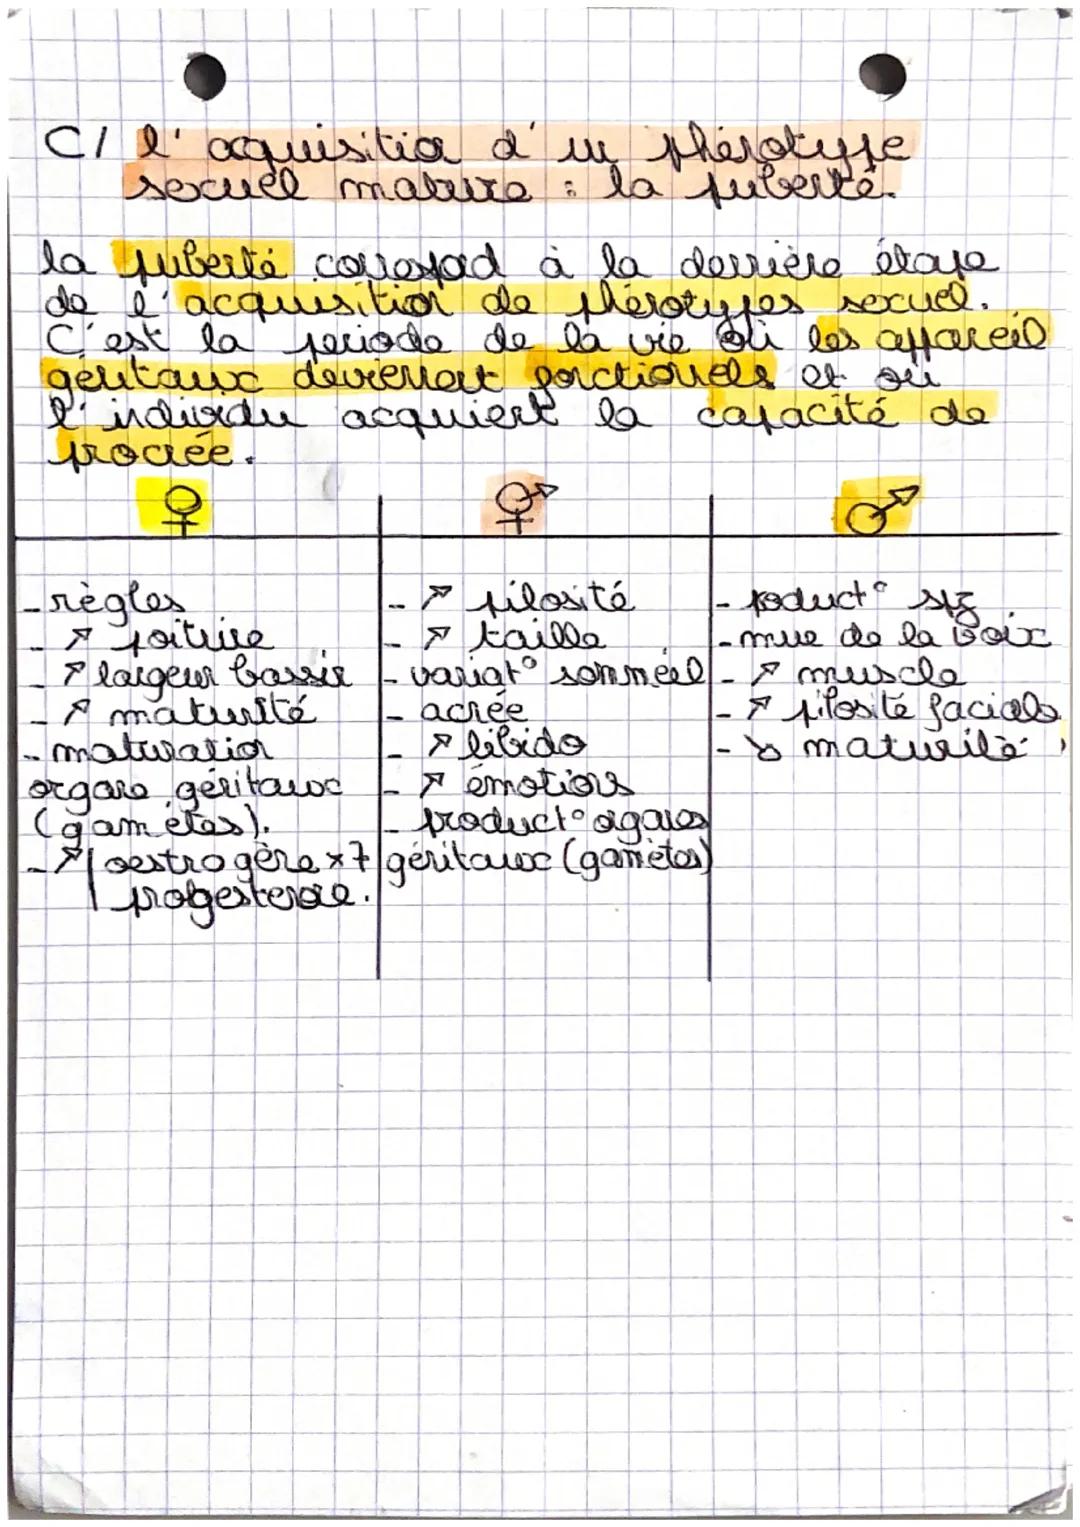 C/ l'acquisition d'un phénotype
sexuel mature : la puberté.
la puberté correspond à la dernière étape
de l'acquisition de phénotypes sexuel.
C'est la periode de la vie où les appareil
génitaux deviennent fonctionnels et où
l'individu acquiert la capacité de
procrée.
♀ ⚥ ♂
- règles
- ↗ poitrine
- ↗ largeur bassin
- ↗ maturité
- maturation
organe génitaux
(gamètes).
- ↗ | oestrogène x7
| progesterone.
- ↗ pilosité
- ↗ taille
- variat° sommeil
- acnée
- ↗ libido
- ↗ émotions
- product° organes
génitaux (gamètes)
- product° spz.
- mue de la voix
- ↗ muscle
- ↗ pilosité faciale
- ↘ maturité